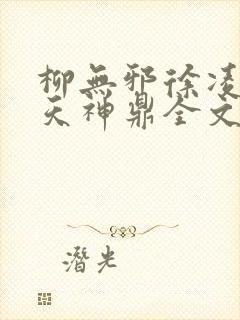 柳無邪徐凌
天神鼎全文
潛光